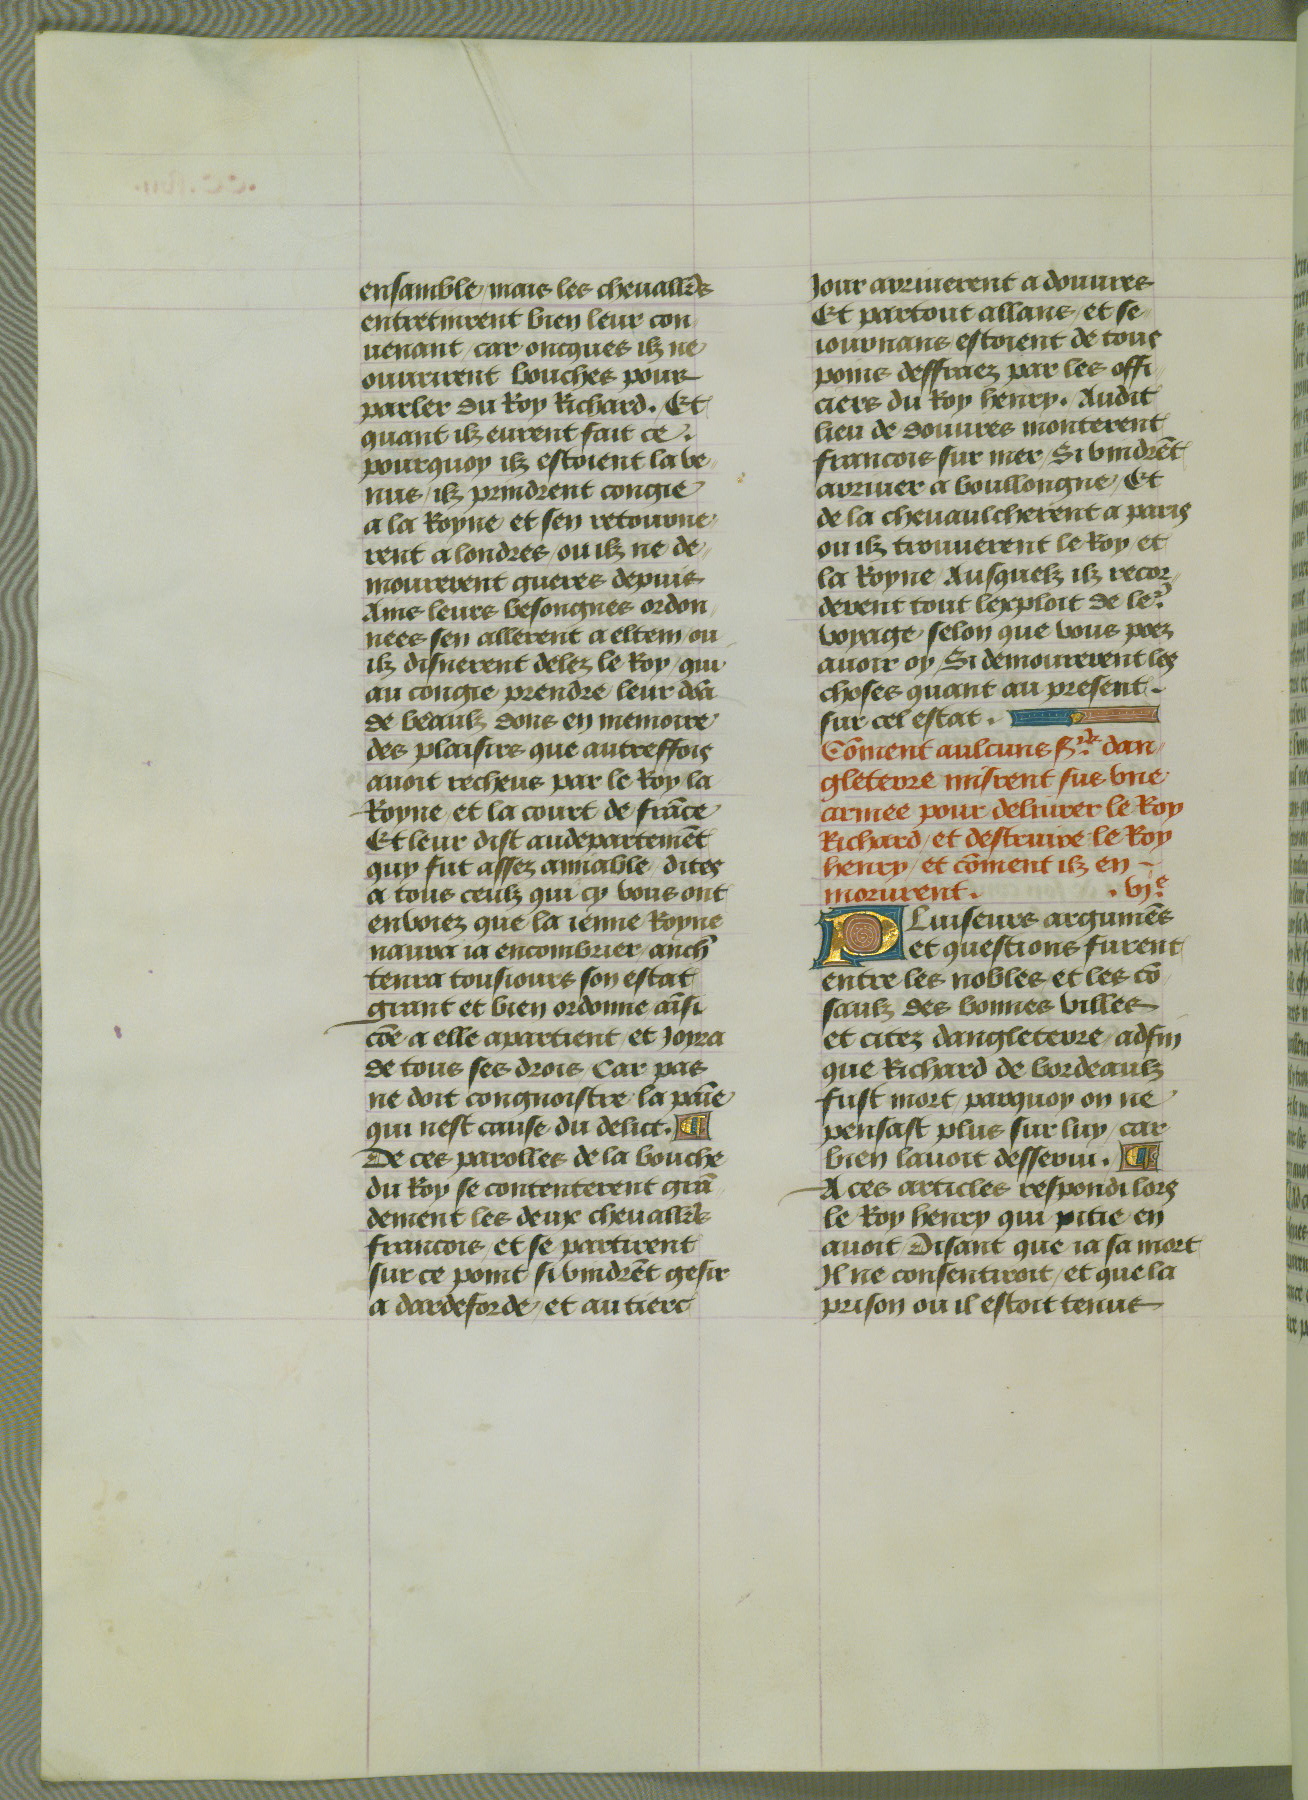 ensamble / mais les cheuallr̃s
entretinrent bien leur con
uenant / car oncques ilz ne
ouurirent bouches pour
parler du Roy Richard. Et
quant ilz eurent fait ce.
pourquoy ilz estoient la ve
nus / ilz prindrent congie
a la Royne et sen retourne
rent a londres / ou ilz ne de
mourerent gueres depuis
Ains leurs besongnes ordon
nees sen allerent a eltem / ou
ilz disnerent delez le Roy / qui
au congie prendre leur dōna
de beaulz dons en memoire
des plaisirs que autreffois
auoit recheus par le Roy la
Royne et la court de frāce
Et leur dist au departemēt
quy fut assez amiable / dites
a tous ceulz qui cy vous ont
enuoiez que la ienne Royne
naura ia encombrier / anch̄
tenra tousiours son estat
grant et bien ordonne aīsi
cōe a elle apartient / et Joyra
de tous ses drois Car pas
ne doit congnoistre la paīe
qui nest cause du delict.
De ces parolles de la bouche
du Roy se contenterent grā
dement les deux cheuallr̃s
francois / et se partirent
sur ce point si vindrēt gesir
a dardeforde / et au tierc
Jour arriuerent a douures
Et partout allans / et se
iournans estoient de tous
poins deffraez par les offi
ciers du Roy henry. Audit
lieu de douures monterent
francois sur mer / Si vindrēt
arriuer a boullongne / Et
de la cheuaulcherent a paris
ou ilz trouuerent le Roy et
la Royne Ausquelz ilz recor
derent tout lexploit de le.ʳ
voyage / selon que vous poez
auoir oy / Si demourerent les
choses quant au present
sur cel estat.
Cōment aulcuns s.ʳˢ dan
gleterre misrent sus vne
armee pour deliurer le Roy
Richard / et destruire le Roy
henry / et cōment ilz en
morurent. . vj.ᵉ
Pluiseurs argumēs
et questions furent
entre les nobles et les cō
saulz des bonnes villes
et citez dangleterre / adfin
que Richard de bordeaulz
fust mort / parquoy on ne
pensast plus sur luy / car
bien lauoit desseruu.
A ces articles respondi lors
le Roy henry qui pitie en
auoit / Disant que ia sa mort
Il ne consentiroit / et que la
prison ou il estoit tenut